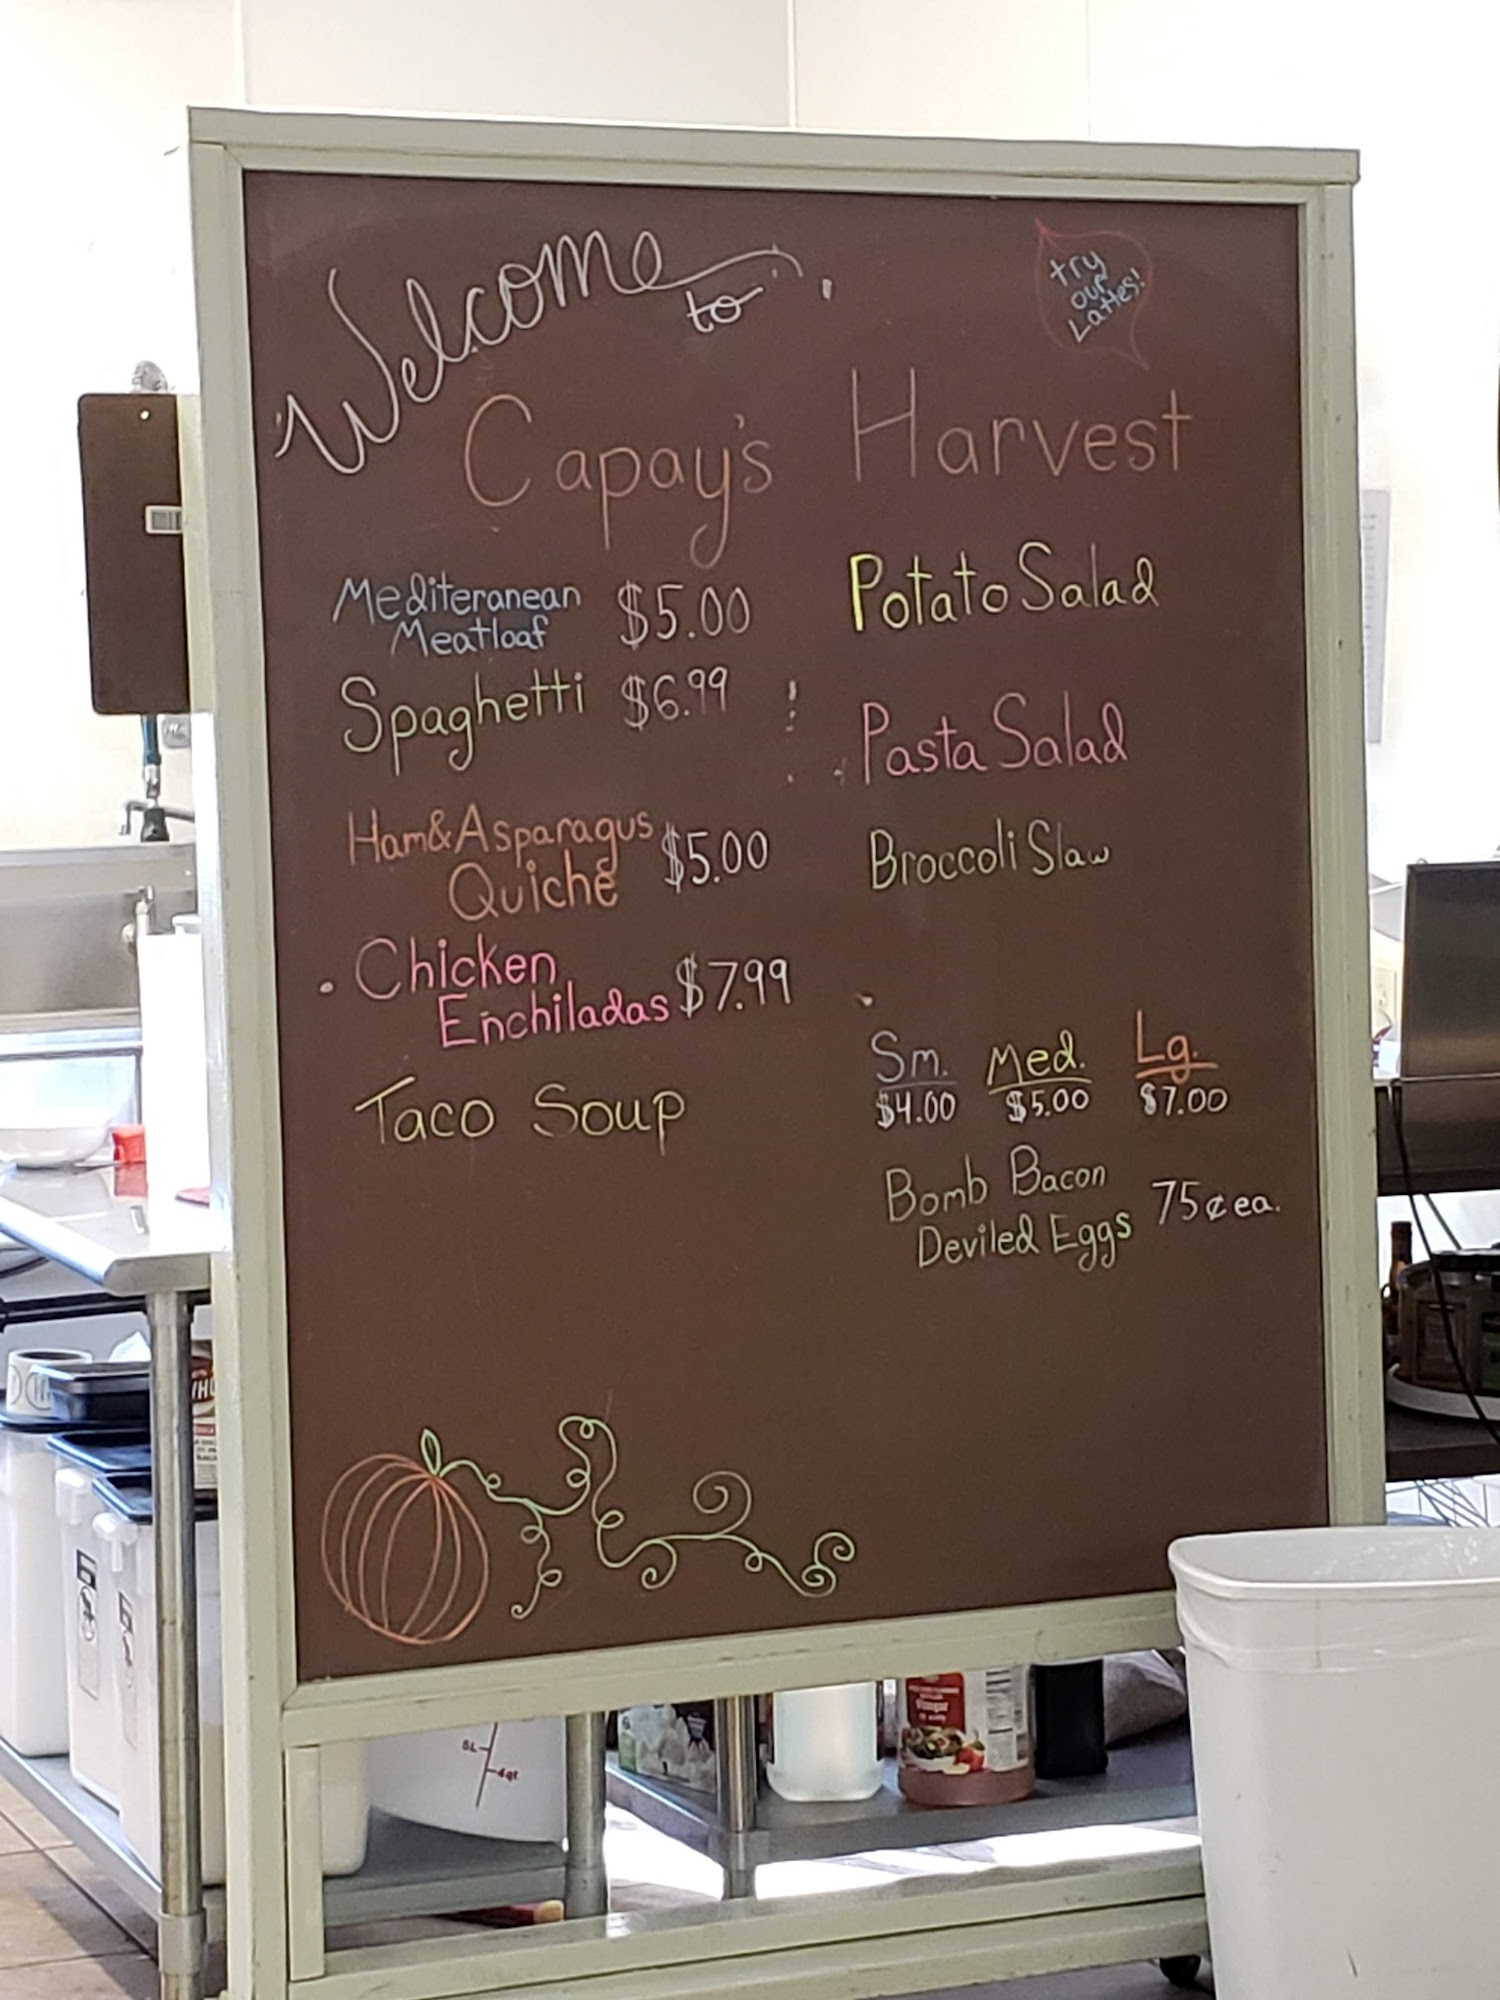 Welcome
to
try
our
Lattes!
Capay's Harvest
Mediteranean
Meatloaf $5.00
Spaghetti $6.99
Ham & Asparagus
Quiche $5.00
Chicken
Enchiladas $7.99
Taco Soup
Potato Salad
Pasta Salad
Broccoli Slaw
Sm. Med. Lg.
$4.00 $5.00 $7.00
Bomb Bacon
Deviled Eggs 75¢ ea.
Vinegar
6L
6qt